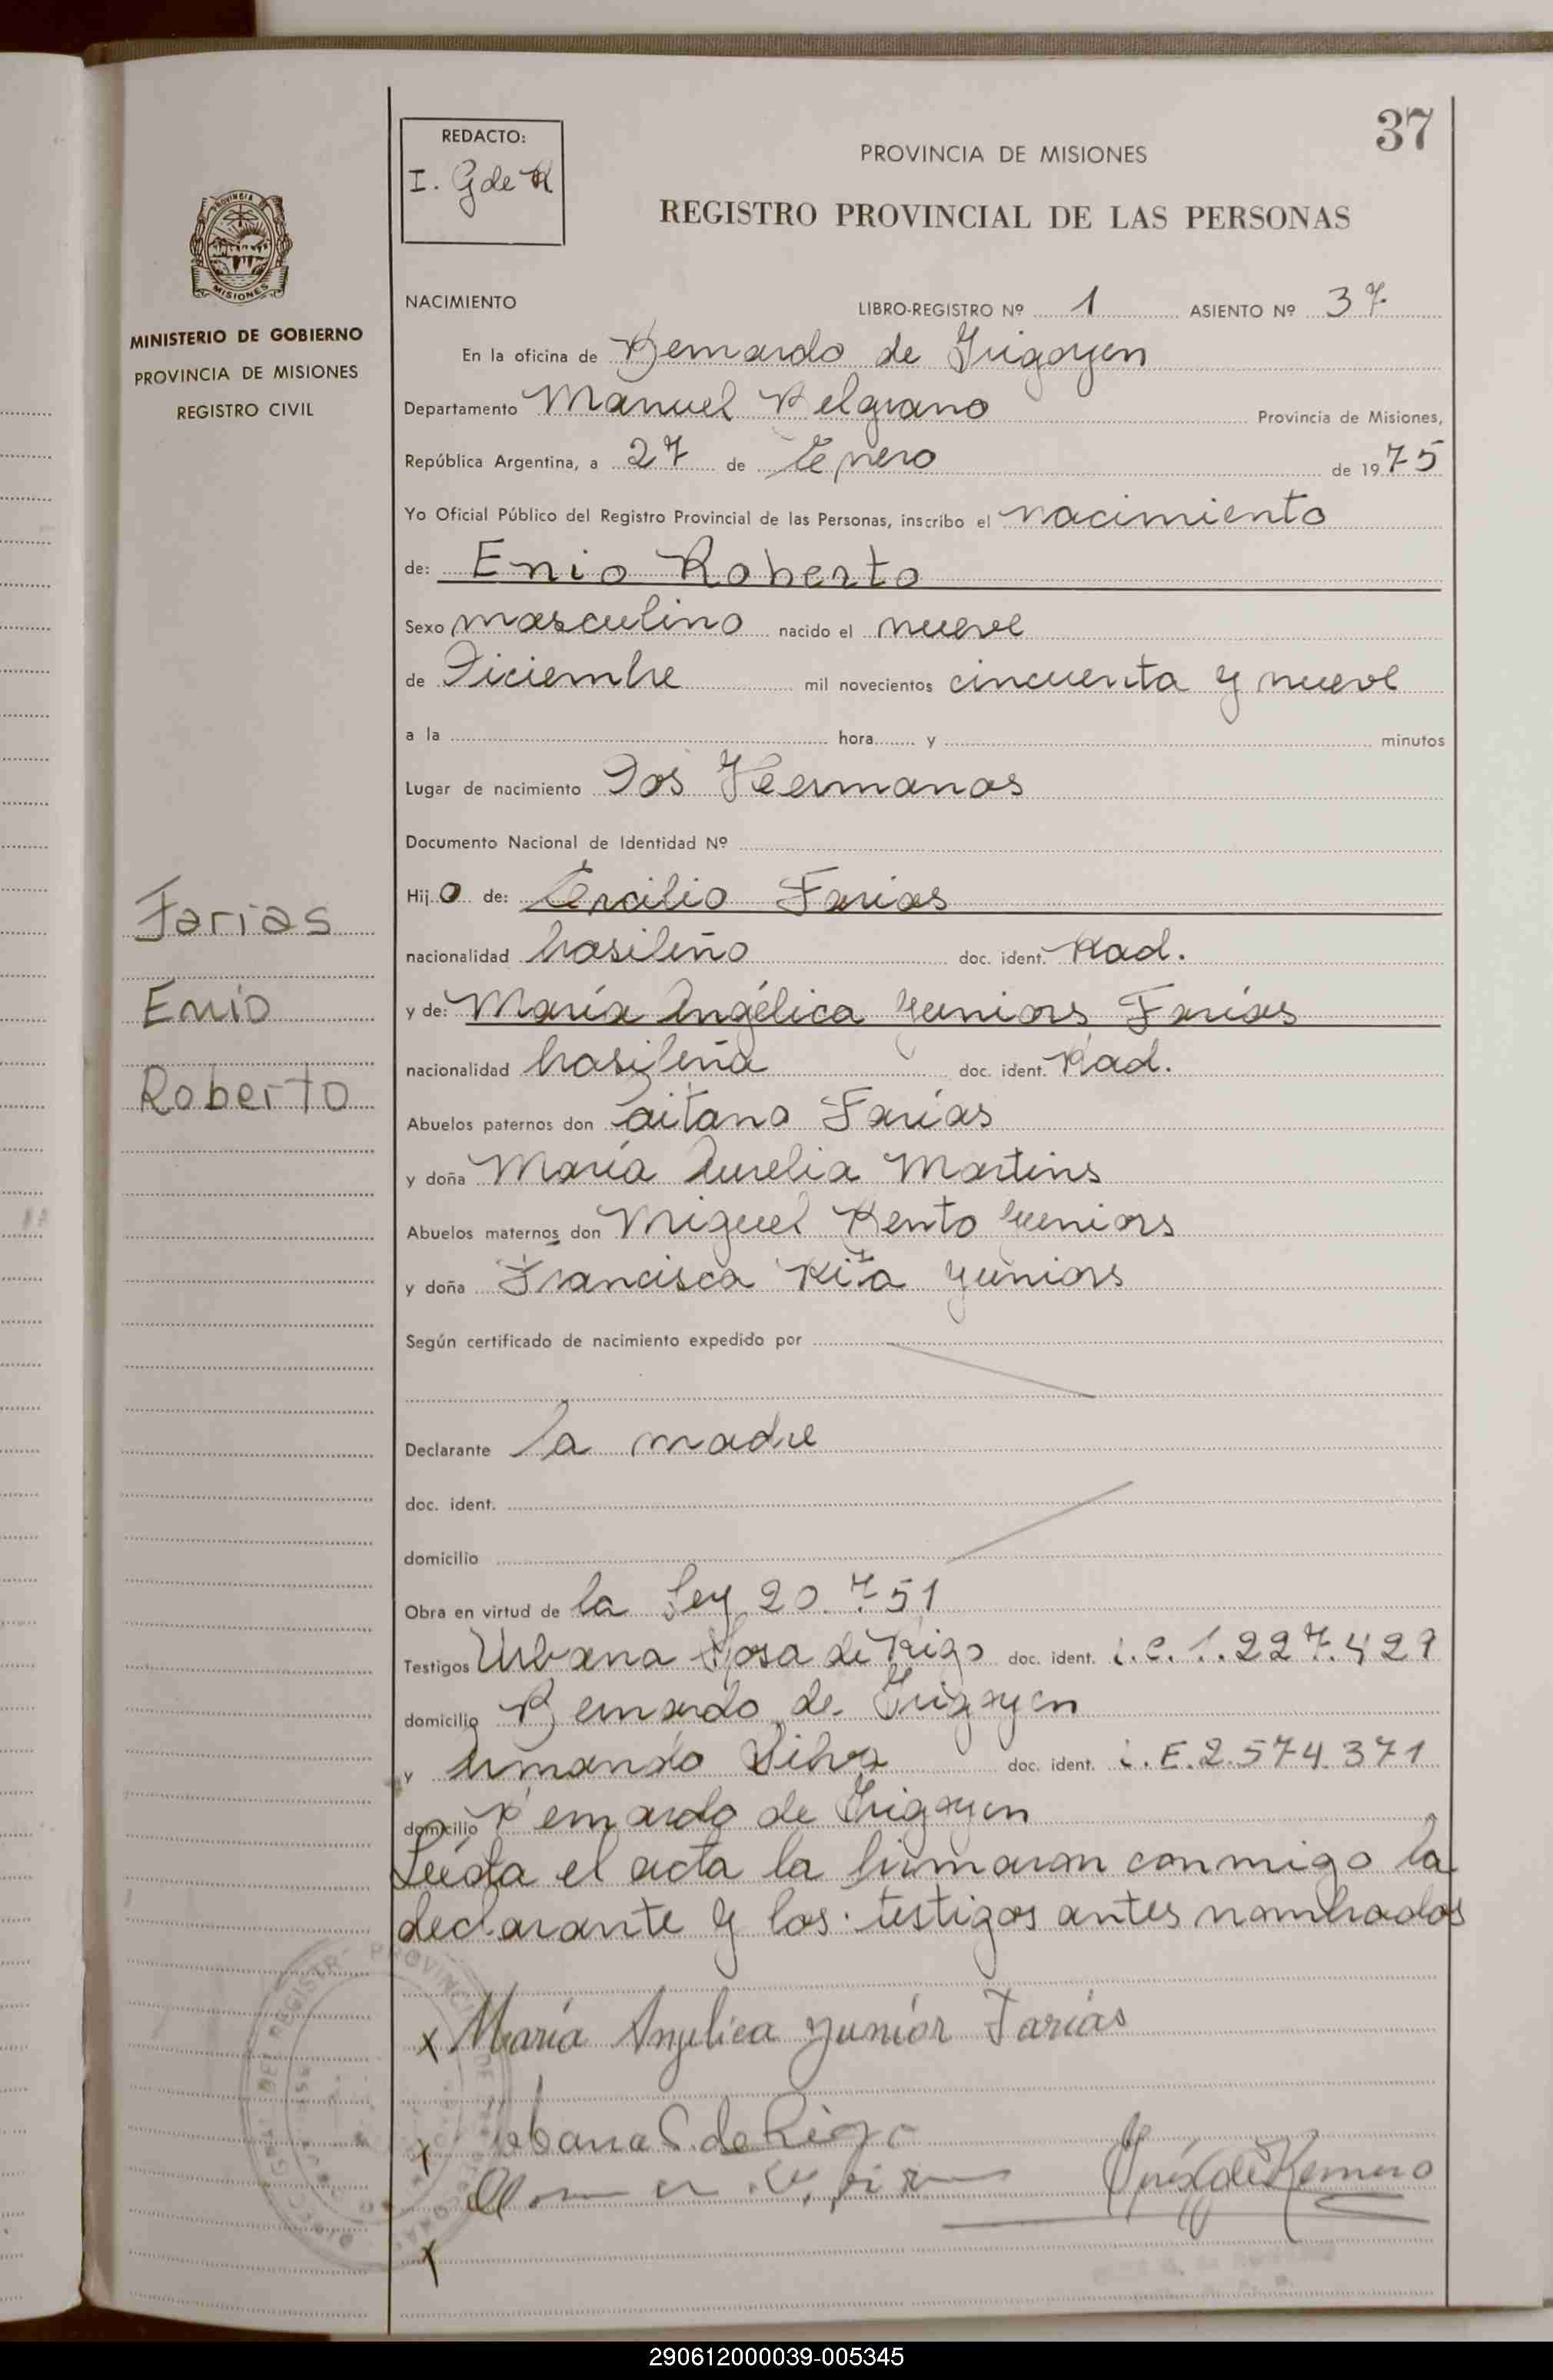 37
REDACTO:
I. G de R
PROVINCIA DE MISIONES
REGISTRO PROVINCIAL DE LAS PERSONAS
PROVINCIA DE
MISIONES
MINISTERIO DE GOBIERNO
PROVINCIA DE MISIONES
REGISTRO CIVIL
NACIMIENTO
LIBRO-REGISTRO Nº 1 ASIENTO Nº 37
En la oficina de Bernardo de Irigoyen
Departamento Manuel Belgrano Provincia de Misiones,
República Argentina, a 27 de Enero de 1975
Yo Oficial Público del Registro Provincial de las Personas, inscribo el nacimiento
de: Enio Roberto
Sexo masculino nacido el nueve
de Diciembre mil novecientos cincuenta y nueve
a la hora y minutos
Lugar de nacimiento Dos Hermanas
Documento Nacional de Identidad Nº
Hijo de: Ercilio Farias
nacionalidad brasileño doc. ident. Rad.
y de: María Angélica Yuniors Farías
nacionalidad brasileña doc. ident. Rad.
Abuelos paternos don Gaitano Farías
y doña María Aurelia Martins
Abuelos maternos don Miguel Bento Yuniors
y doña Francisca Rita Yuniors
Según certificado de nacimiento expedido por
Declarante la madre
doc. ident.
domicilio
Obra en virtud de la Ley 20.751
Testigos Urbana Sosa de Rigo doc. ident. L.C. 1.227.429
domicilio Bernardo de Irigoyen
y Armando Silva doc. ident. L.E. 2.574.371
domicilio Bernardo de Irigoyen
Leída el acta la firmaron conmigo la
declarante y los testigos antes nombrados
Farias
Enio
Roberto
x María Angelica Yunior Farías
x Urbana S. de Rigo
x
290612000039-005345